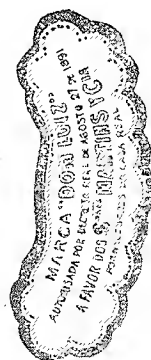 MARCA "DON LUIZ"
AUTORISADA POR DECRETO REAL DE AGOSTO 27 DE 1891
A FAVOR DOS S. MARTINS Y Cia
DA CASA REAL